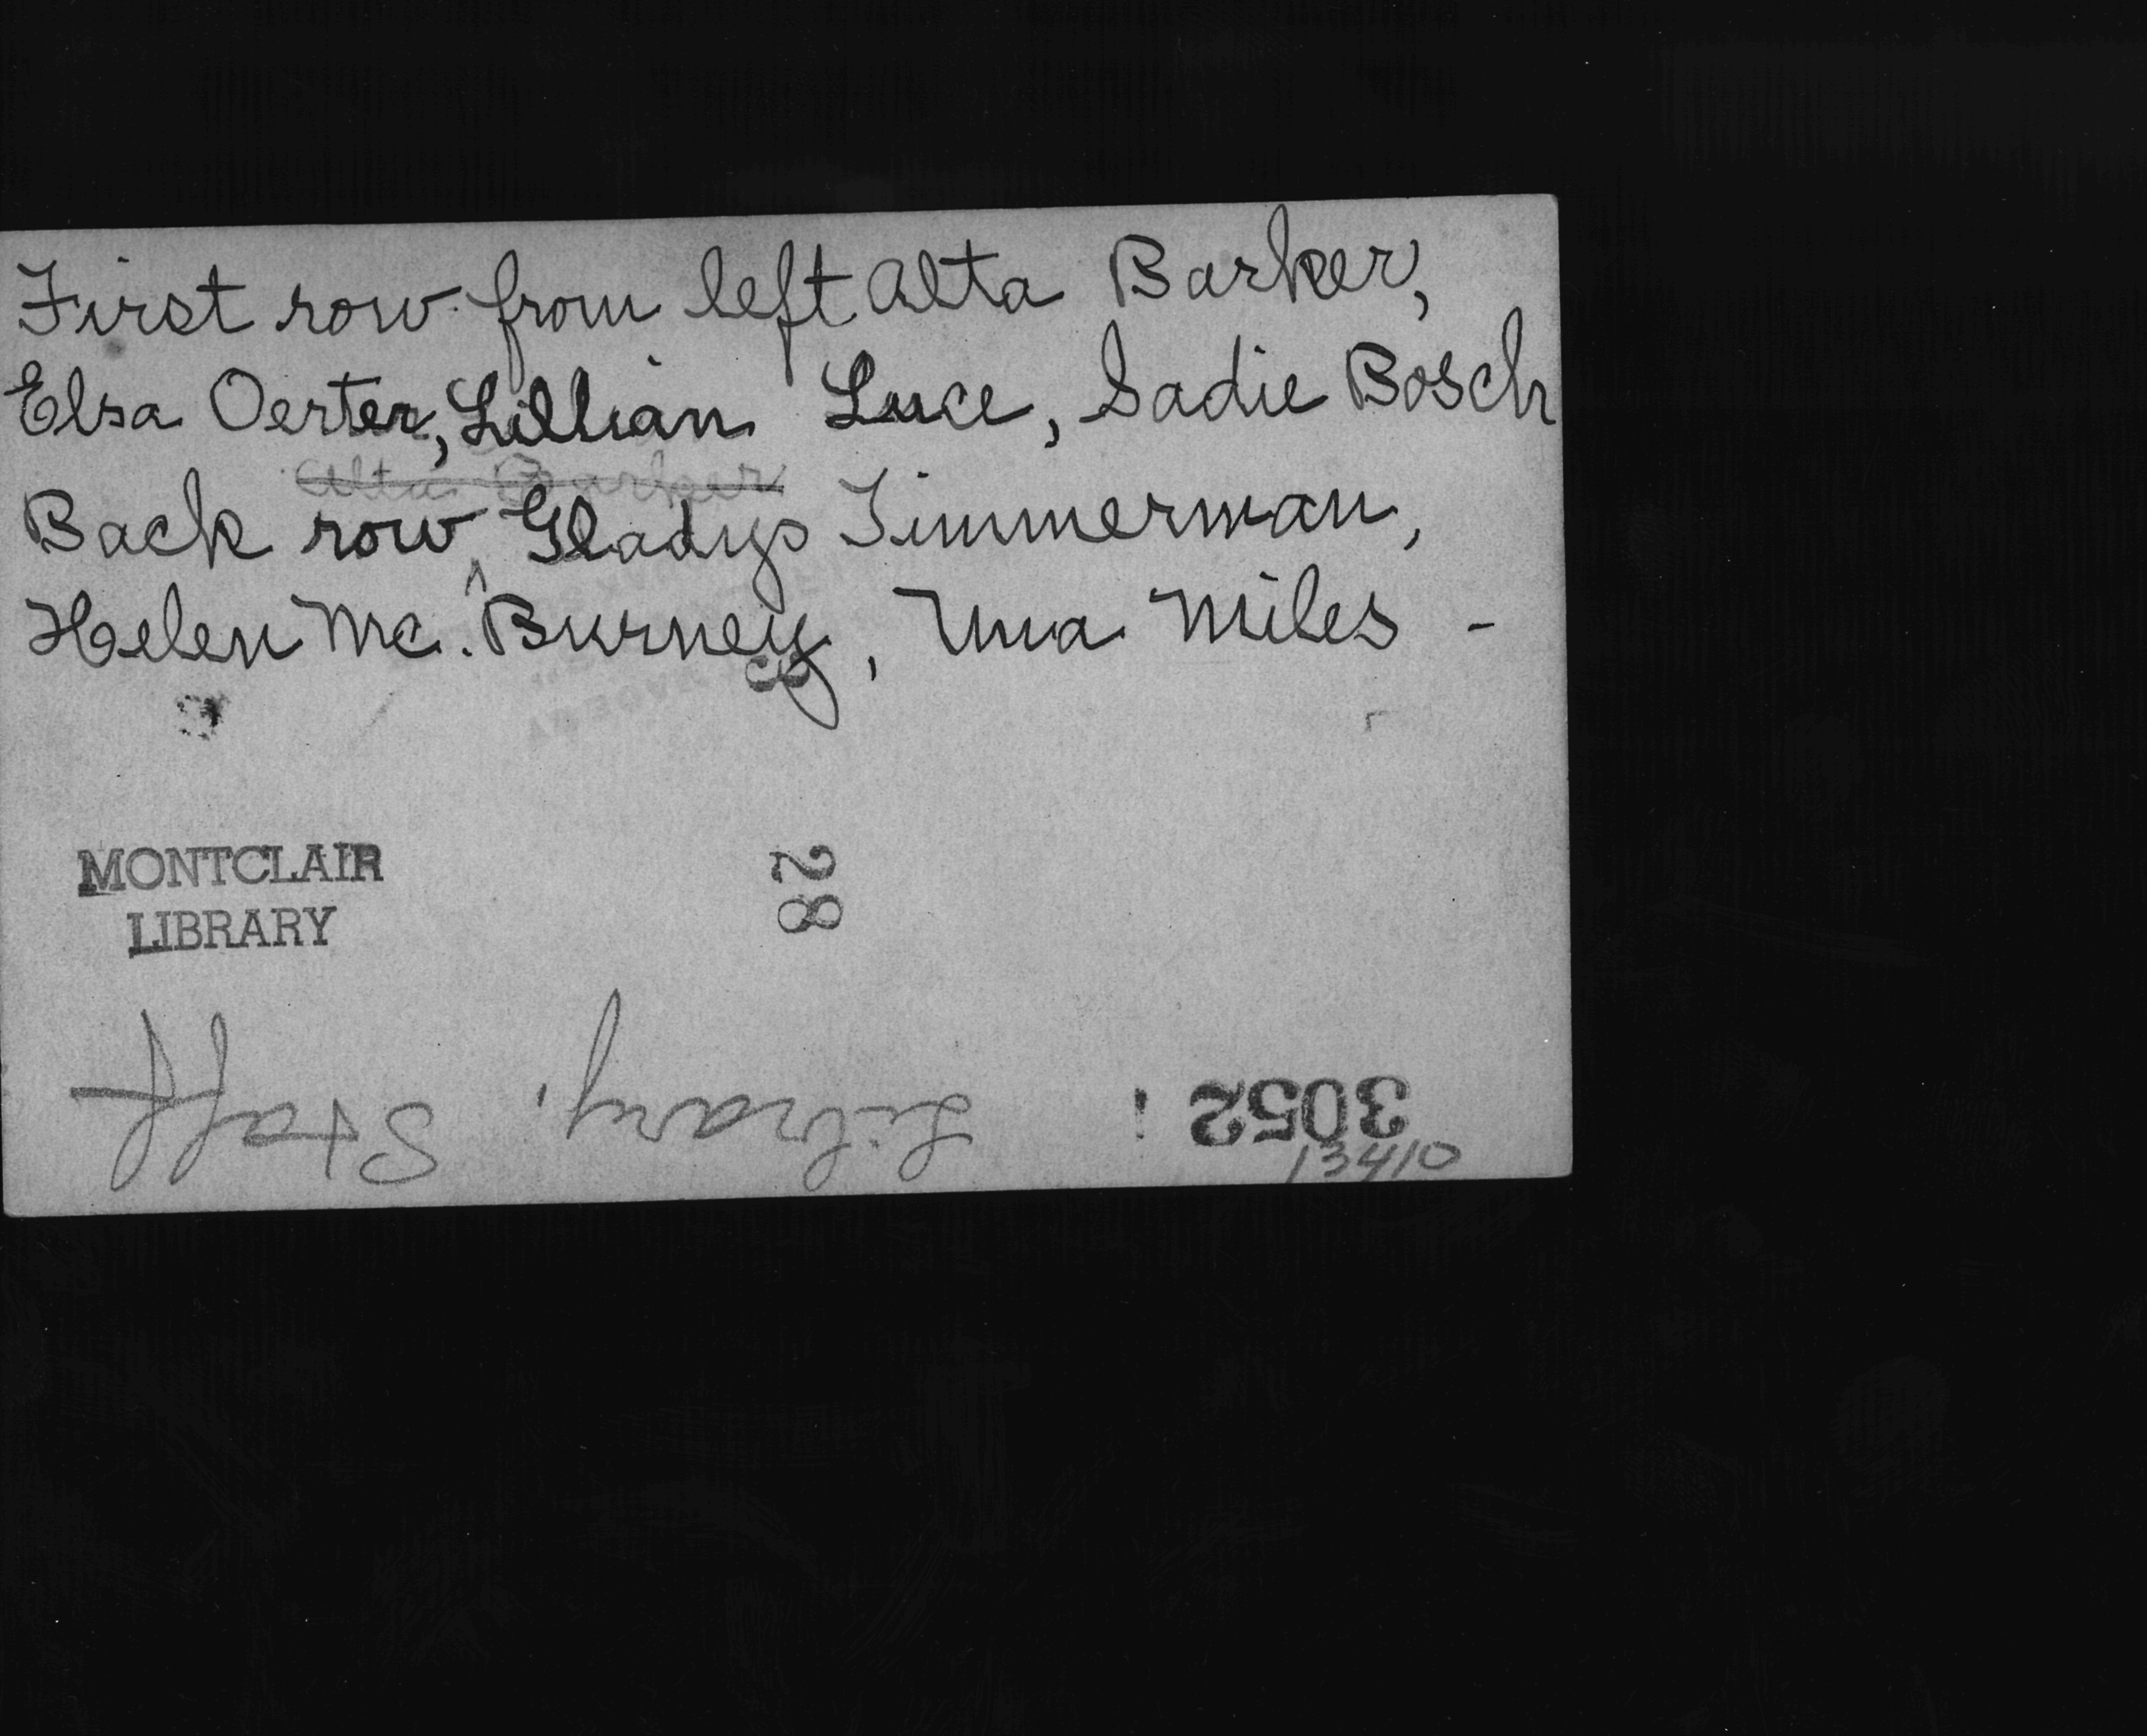 First row from left Alta Barker,
Elsa Oerter, Lillian Luce, Sadie Bosch
Alta Barker
Back row Gladys Timmerman,
Helen Mc. Burney, Una Miles -
MONTCLAIR
LIBRARY
28
Library, Staff
3052
13410